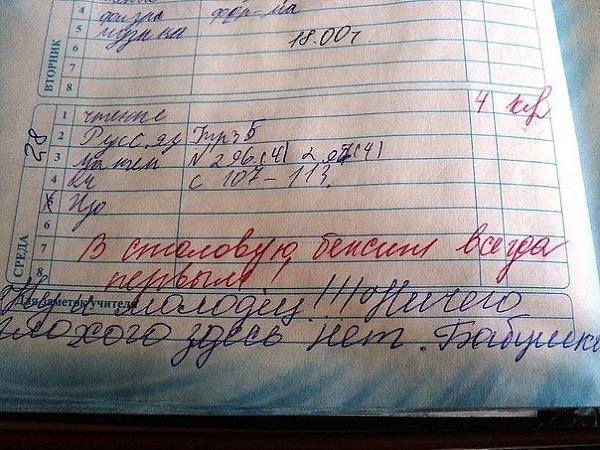 4 физра форма
5 музыка
6 18.00г.
7
8
ВТОРНИК
28
СРЕДА
1 чтение 4
2 Русс. яз Упр 5
3 матем N 296.(4)
4 с 107-113.
5 Изо
6
7 В столовую бежит всегда
8 первым!
Для заметок учителя
Ну и молодец!!! Ничего
плохого здесь нет. Бабушка